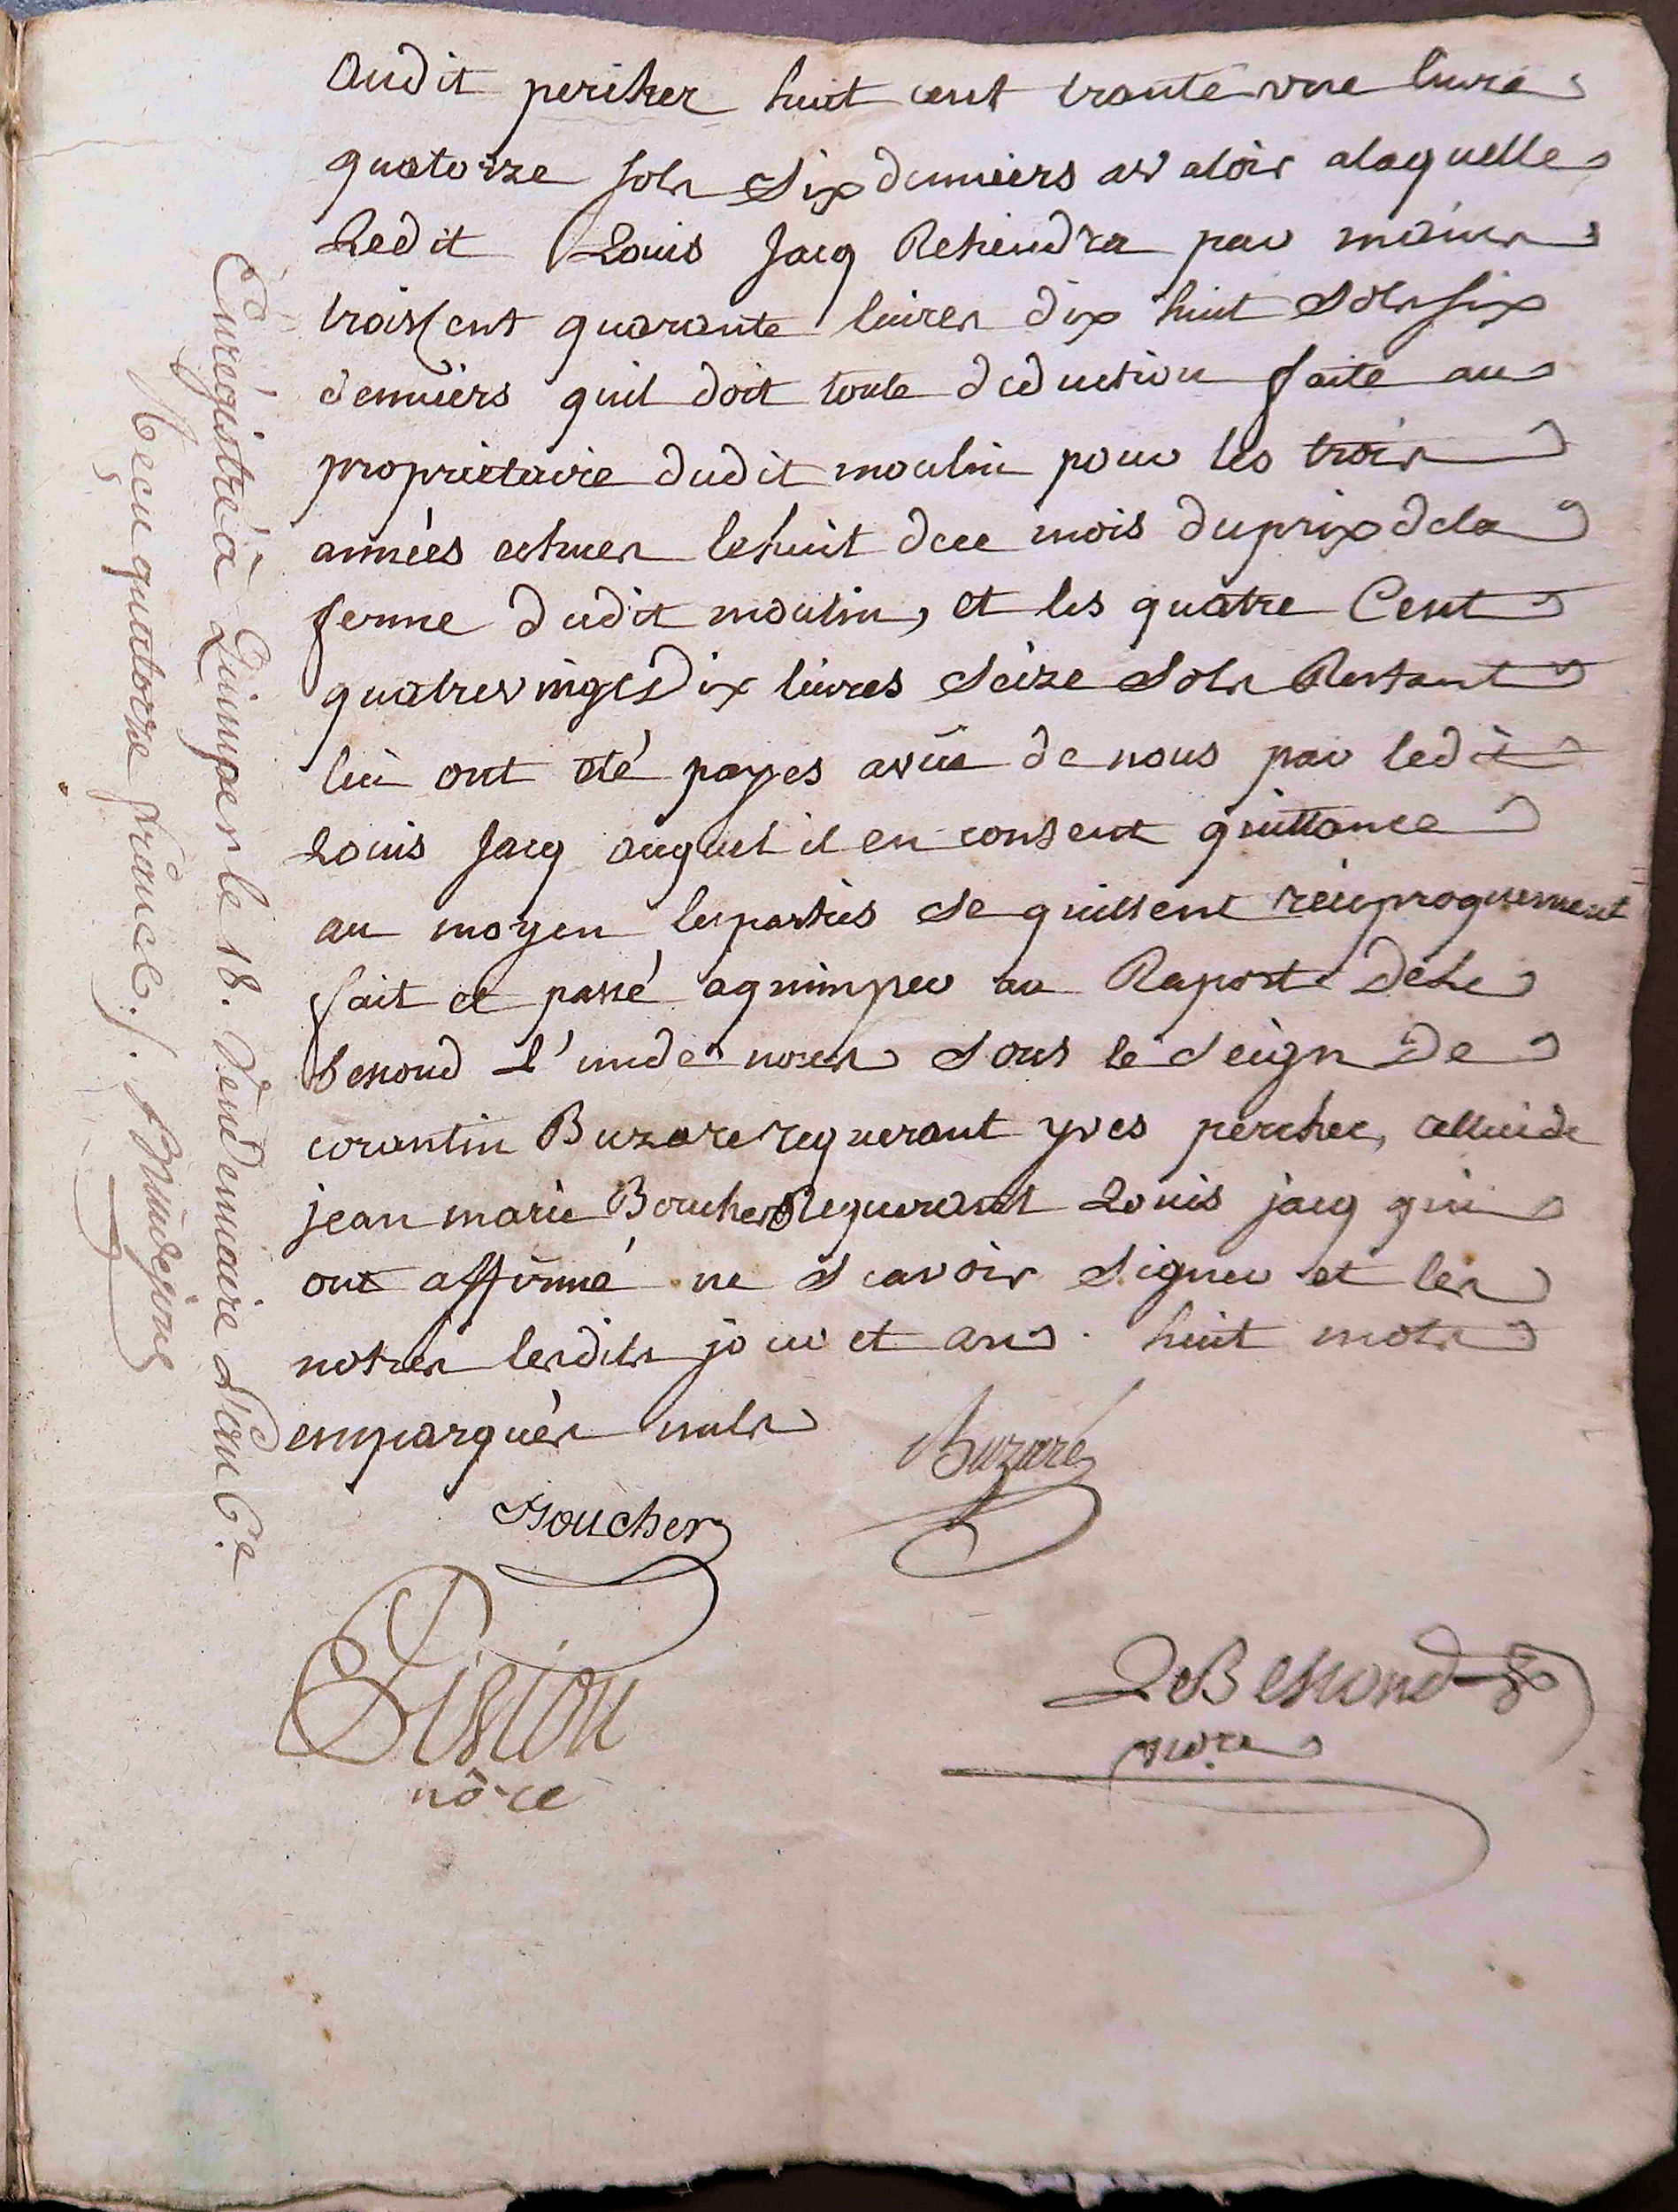 audit pericher huit cent trante une livre
quatorze sols six denniers avaloir alaquelle
Ledit Louis Jacq Retiendra par mains
trois cent quarante livres dix huit sols six
denniers quil doit toute deduction faite au
propriétaire dudit moulin pour les trois
années echues lehuit dece mois duprix dela
ferme dudit moulin, et les quatre Cent
quatrevingts Dix livres seize sols Restant
lui ont été payes avüe de nous par ledit
Louis Jacq auquel il en consent quittance
au moyen lesparties se quittent réciproquement
fait et passé aquimper au Raport de Le
Bescond L'unde nous sous le seign De
corantin Buzaré requerant yves pericher, celluide
jean marie Boucher Requerant Louis jacq qui
ont affirmé ne scavoir signer et les
notres lesdits jour et an. huit mots
emparqués nuls
Buzaré
Boucher
LeBescond
nore
nôre
Enregistré à Quimper le 18. Vendemiaire d'an 6.e
Reçu quatorze francs./.